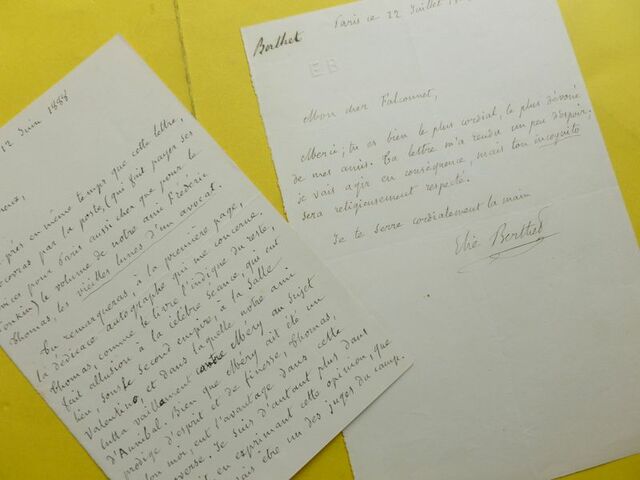 12 Juin 1888
près en même temps que cette lettre,
par la poste, (qui fait payer ses
pour Paris aussi cher que pour le
Tonkin) le volume de notre ami Frédéric
Thomas, les vieilles lunes d'un avocat.
Tu remarqueras, à la première page,
la dédicace autographe qui me concerne.
Thomas, comme le livre l'indique du reste,
fait allusion à la célèbre séance, qui eut
lieu, sous le second empire, à la Salle
Valentino, et dans laquelle notre ami
lutta vaillament contre Méry au sujet
d'Annibal. Bien que Méry ait été un
prodige d'esprit et de finesse, Thomas,
selon moi, eut l'avantage dans cette
. Je suis d'autant plus dans
en exprimant cette opinion, que
être un des juges du camp.
Berthet
Paris ce 22 Juillet
EB
Mon cher Falconnet,
Merci; tu es bien le plus cordial, le plus dévoué
de mes amis. Ta lettre m'a rendu un peu d'espoir;
Je vais agir en conséquence, mais ton incognito
sera religieusement respecté.
Je te serre cordialement la main
Elie Berthet